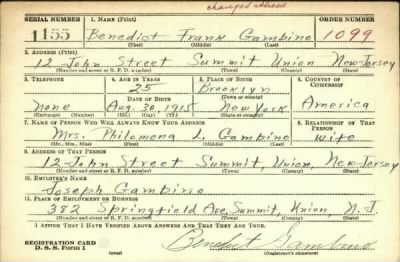 changed address
SERIAL NUMBER 1. NAME (Print) ORDER NUMBER
1155 Benedict Frank Gambino 1099
(First) (Middle) (Last)
2. ADDRESS (Print)
12 John Street Summit Union New Jersey
(Number and street or R. F. D. number) (Town) (County) (State)
3. TELEPHONE 4. AGE IN YEARS 5. PLACE OF BIRTH 6. COUNTRY OF CITIZENSHIP
25 Brooklyn
DATE OF BIRTH (Town or county)
None Aug. 30, 1915 New York America
(Exchange) (Number) (Mo.) (Day) (Yr.) (State or country)
7. NAME OF PERSON WHO WILL ALWAYS KNOW YOUR ADDRESS 8. RELATIONSHIP OF THAT PERSON
Mrs. Philomena L. Gambino wife
(Mr., Mrs., Miss) (First) (Middle) (Last)
9. ADDRESS OF THAT PERSON
12 John Street Summit, Union, New Jersey
(Number and street or R. F. D. number) (Town) (County) (State)
10. EMPLOYER'S NAME
Joseph Gambino
11. PLACE OF EMPLOYMENT OR BUSINESS
382 Springfield Ave Summit, Union, N. J.
(Number and street or R. F. D. number) (Town) (County) (State)
I AFFIRM THAT I HAVE VERIFIED ABOVE ANSWERS AND THAT THEY ARE TRUE.
REGISTRATION CARD
D. S. S. Form 1
Benedict Gambino